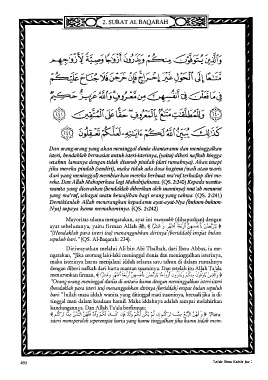 2. SURAT AL BAQARAH
وَالَّذِينَ يُتَوَفَّوْنَ مِنكُمْ وَيَذَرُونَ أَزْوَاجًا وَصِيَّةً لِّأَزْوَاجِهِم
مَّتَاعًا إِلَى الْحَوْلِ غَيْرَ إِخْرَاجٍ فَإِنْ خَرَجْنَ فَلَا جُنَاحَ عَلَيْكُمْ
فِي مَا فَعَلْنَ فِي أَنفُسِهِنَّ مِن مَّعْرُوفٍ وَاللَّهُ عَزِيزٌ حَكِيمٌ
وَلِلْمُطَلَّقَاتِ مَتَاعٌ بِالْمَعْرُوفِ حَقًّا عَلَى الْمُتَّقِينَ
كَذَلِكَ يُبَيِّنُ اللَّهُ لَكُمْ آيَاتِهِ لَعَلَّكُمْ تَعْقِلُونَ
Dan orang-orang yang akan meninggal dunia diantaramu dan meninggalkan
isteri, hendaklah berwasiat untuk isteri-isterinya, (yaitu) diberi nafkah hingga
setahun lamanya dengan tidak disuruh pindah (dari rumahnya). Akan tetapi
jika mereka pindah (sendiri), maka tidak ada dosa bagimu (wali atau waris
dari yang meninggal) membiarkan mereka berbuat ma'ruf terhadap diri me-
reka. Dan Allah Mahaperkasa lagi Mahabijaksana. (QS. 2:240) Kepada wanita-
wanita yang diceraikan (hendaklah diberikan oleh suaminya) mut'ah menurut
yang ma'ruf, sebagai suatu kewajiban bagi orang yang takwa. (QS. 2:241)
Demikianlah Allah menerangkan kepadamu ayat-ayat-Nya (hukum-hukum-
Nya) supaya kamu memahaminya. (QS. 2:242)
Mayoritas ulama mengatakan, ayat ini mansukh (dihapuskan) dengan
ayat sebelumnya, yaitu firman Allah
"(Hendaklah para isteri itu) menangguhkan dirinya (beriddah) empat bulan
sepuluh hari." (QS. Al-Baqarah: 234).
Diriwayatkan melalui Ali bin Abi Thalhah, dari Ibnu Abbas, ia me-
ngatakan, "Jika seorang laki-laki meninggal dunia dan meninggalkan isterinya,
maka isterinya harus menjalani iddah selama satu tahun di dalam rumahnya
dengan diberi nafkah dari harta mantan suaminya. Dan setelah itu Allah Ta'ala
menurunkan
"Orang-orang meninggal dunia di antara kamu dengan meninggalkan isteri-isteri
(hendaklah para isteri itu) menangguhkan dirinya (beriddah) empat bulan sepuluh
hari." Inilah masa iddah wanita yang ditinggal mati suaminya, kecuali jika ia di-
tinggal mati dalam keadaan hamil. Maka iddahnya adalah sampai melahirkan
kandungannya. Dan Allah Ta'ala berfirman:
"Para
isteri memperoleh seperempat harta yang kamu tinggalkan jika kamu tidak mem-